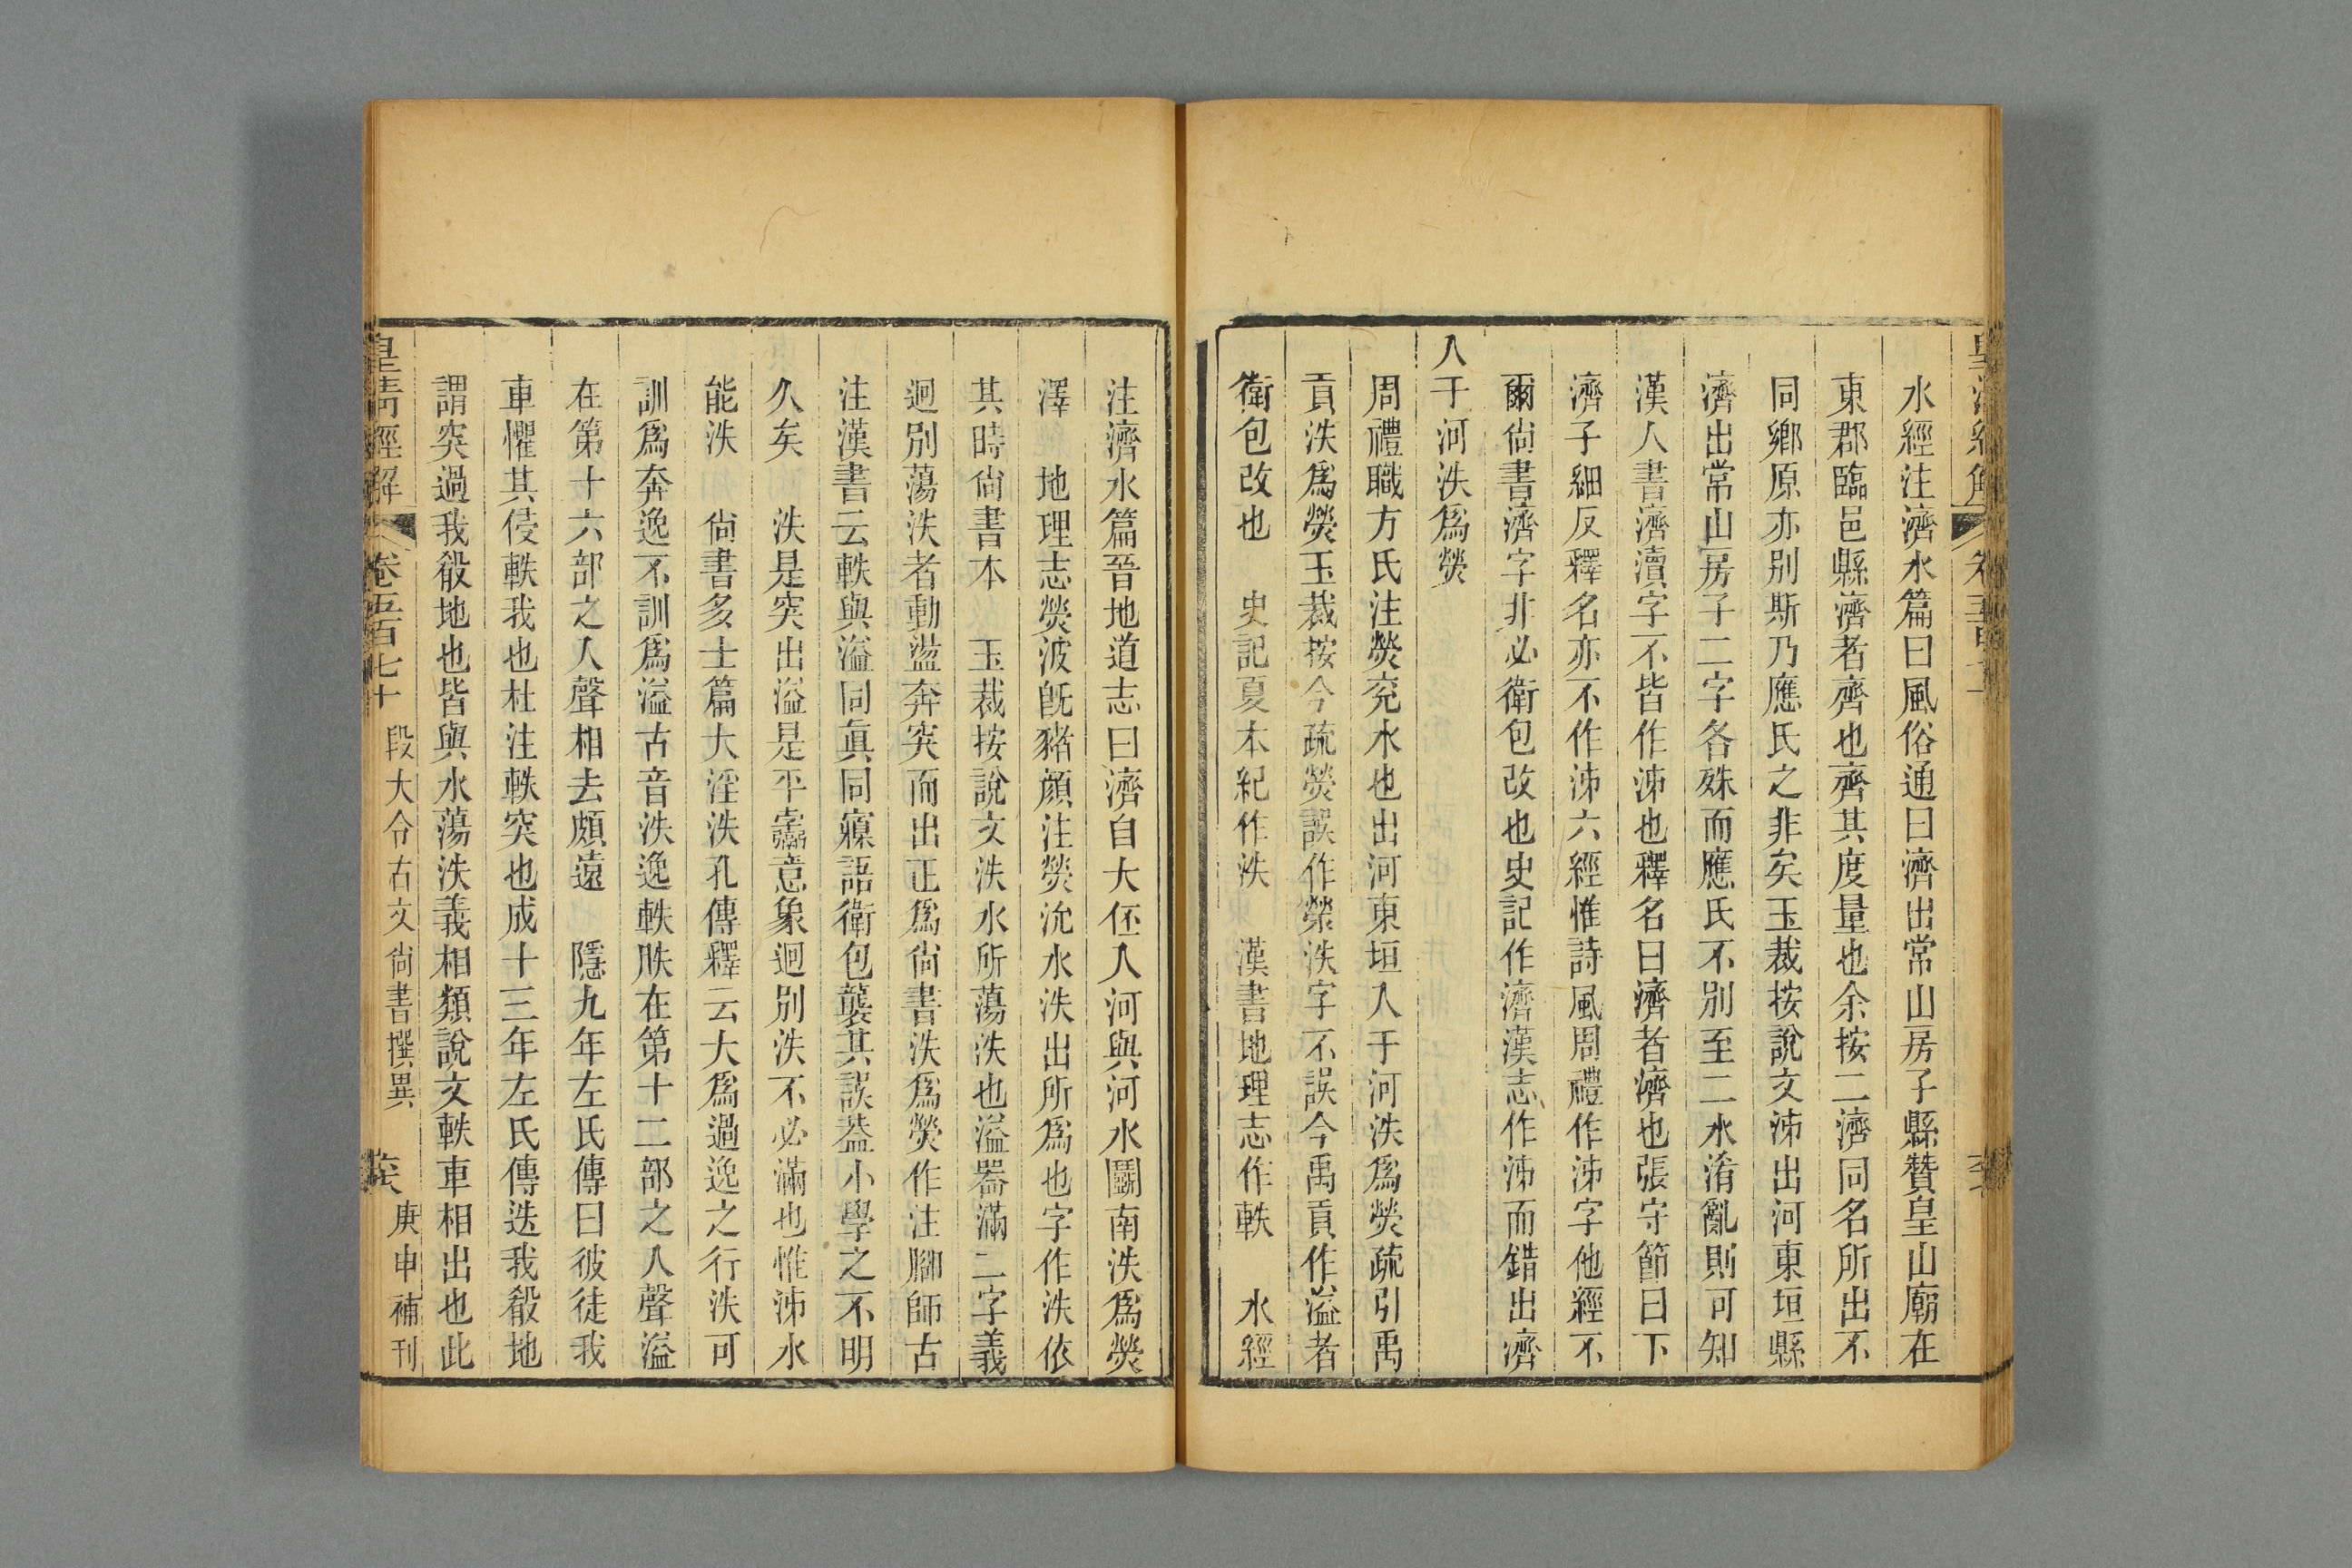 水經注濟水篇曰風俗通曰濟出常山房子縣贊皇山廟在
東郡臨邑縣濟者齊也齊其度量也余按二濟同名所出不
同鄉原亦别斯乃應氏之非矣玉裁按說文泲出河東垣縣
濟出常山房子二字各殊而應氏不別至二水淆亂則可知
漢人書濟瀆字不皆作泲也釋名曰濟者濟也張守節曰下
濟子細反釋名亦不作泲六經惟詩風周禮作泲字他經不
爾尙書濟字非必衛包改也史記作濟漢志作泲而錯出濟
入于河泆爲熒
周禮職方氏注熒兖水也出河東垣入于河泆爲熒疏引禹
貢泆爲熒玉裁按今疏熒誤作滎泆字不誤今禹貢作溢者
衛包改也 史記夏本紀作泆 漢書地理志作軼 水經
注濟水篇晉地道志曰濟自大伾入河與河水鬬南泆爲熒
澤 地理志熒波旣豬顔注熒沇水泆出所爲也字作泆依
其時尙書本 玉裁按說文泆水所蕩泆也溢器滿二字義
迥別蕩泆者動盪奔突而出正爲尙書泆爲熒作注腳師古
注漢書云軼與溢同眞同寱語衛包襲其誤葢小學之不明
久矣 泆是突出溢是平𪔀意象迥别泆不必滿也惟泲水
能泆 尙書多士篇大淫泆孔傳釋云大爲過逸之行泆可
訓爲奔逸不訓爲溢古音泆逸軼胅在第十二部之入聲溢
在第十六部之入聲相去頗遠 隱九年左氏傳曰彼徒我
車懼其侵軼我也杜注軼突也成十三年左氏傳迭我殽地
謂突過我殽地也皆與水蕩泆義相類說文軼車相出也此
皇淸經解 卷五百七十 段大令古文尙書撰異 庚申補刊